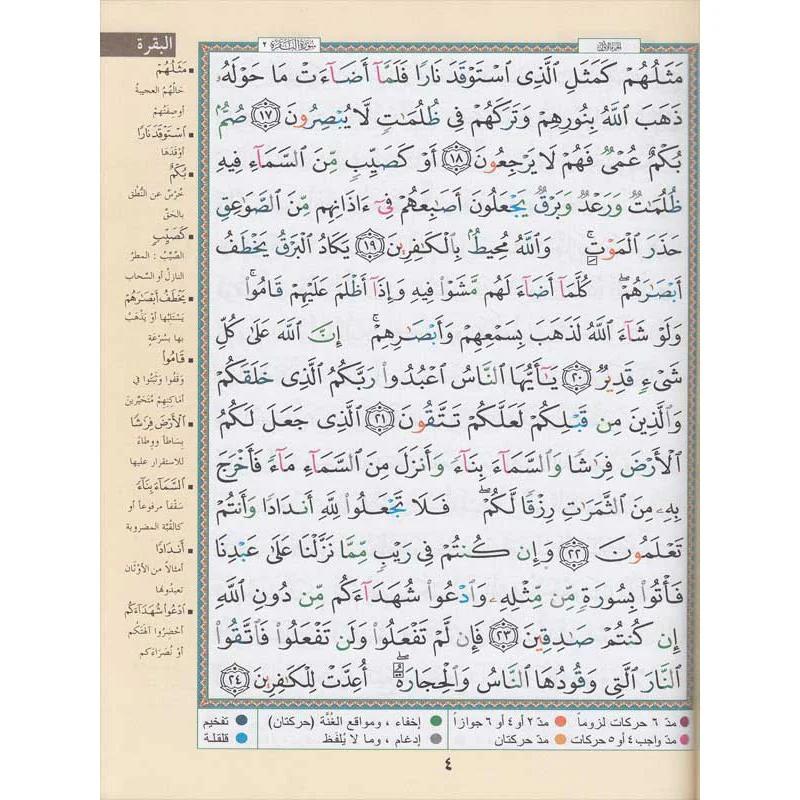 البقرة
سورة البقرة ٢
الجزء الأول
مَثَلُهُمْ كَمَثَلِ ٱلَّذِى ٱسْتَوْقَدَ نَارًا فَلَمَّآ أَضَآءَتْ مَا حَوْلَهُۥ
ذَهَبَ ٱللَّهُ بِنُورِهِمْ وَتَرَكَهُمْ فِى ظُلُمَٰتٍ لَّا يُبْصِرُونَ ١٧ صُمٌّۢ
بُكْمٌ عُمْىٌ فَهُمْ لَا يَرْجِعُونَ ١٨ أَوْ كَصَيِّبٍ مِّنَ ٱلسَّمَآءِ فِيهِ
ظُلُمَٰتٌ وَرَعْدٌ وَبَرْقٌ يَجْعَلُونَ أَصَٰبِعَهُمْ فِىٓ ءَاذَانِهِم مِّنَ ٱلصَّوَٰعِقِ
حَذَرَ ٱلْمَوْتِ ۚ وَٱللَّهُ مُحِيطٌۢ بِٱلْكَٰفِرِينَ ١٩ يَكَادُ ٱلْبَرْقُ يَخْطَفُ
أَبْصَٰرَهُمْ ۖ كُلَّمَآ أَضَآءَ لَهُم مَّشَوْا۟ فِيهِ وَإِذَآ أَظْلَمَ عَلَيْهِمْ قَامُوا۟ ۚ
وَلَوْ شَآءَ ٱللَّهُ لَذَهَبَ بِسَمْعِهِمْ وَأَبْصَٰرِهِمْ ۚ إِنَّ ٱللَّهَ عَلَىٰ كُلِّ
شَىْءٍ قَدِيرٌ ٢٠ يَٰٓأَيُّهَا ٱلنَّاسُ ٱعْبُدُوا۟ رَبَّكُمُ ٱلَّذِى خَلَقَكُمْ
وَٱلَّذِينَ مِن قَبْلِكُمْ لَعَلَّكُمْ تَتَّقُونَ ٢١ ٱلَّذِى جَعَلَ لَكُمُ
ٱلْأَرْضَ فِرَٰشًا وَٱلسَّمَآءَ بِنَآءً وَأَنزَلَ مِنَ ٱلسَّمَآءِ مَآءً فَأَخْرَجَ
بِهِۦ مِنَ ٱلثَّمَرَٰتِ رِزْقًا لَّكُمْ ۖ فَلَا تَجْعَلُوا۟ لِلَّهِ أَندَادًا وَأَنتُمْ
تَعْلَمُونَ ٢٢ وَإِن كُنتُمْ فِى رَيْبٍ مِّمَّا نَزَّلْنَا عَلَىٰ عَبْدِنَا
فَأْتُوا۟ بِسُورَةٍ مِّن مِّثْلِهِۦ وَٱدْعُوا۟ شُهَدَآءَكُم مِّن دُونِ ٱللَّهِ
إِن كُنتُمْ صَٰدِقِينَ ٢٣ فَإِن لَّمْ تَفْعَلُوا۟ وَلَن تَفْعَلُوا۟ فَٱتَّقُوا۟
ٱلنَّارَ ٱلَّتِى وَقُودُهَا ٱلنَّاسُ وَٱلْحِجَارَةُ ۖ أُعِدَّتْ لِلْكَٰفِرِينَ ٢٤
مَثَلُهُمْ
حالُهُمُ العجيبةُ
أو صِفَتُهُمْ
ٱسْتَوْقَدَ نَارًا
أَوْقَدَهَا
بُكْمٌ
خُرْسٌ عن النُّطْقِ
بالحَقِّ
كَصَيِّبٍ
الصَّيِّبُ : المطرُ
النازِلُ أو السَّحاب
يَخْطَفُ أَبْصَٰرَهُمْ
يَسْتَلِبُها أو يَذْهَبُ
بها بسُرْعَةٍ
قَامُوا۟
وَقَفُوا وَثَبَتُوا في
أماكِنِهِمْ مُتَحَيِّرين
ٱلْأَرْضَ فِرَٰشًا
بِساطاً ووِطاءً
للاستقرار عليها
ٱلسَّمَآءَ بِنَآءً
سَقْفاً مرفوعاً أو
كالقُبَّة المضروبة
أَندَادًا
أمثالاً من الأوْثان
تعبدُونها
ٱدْعُوا۟ شُهَدَآءَكُم
أحْضِرُوا آلهَتَكم
أو نُصَرَاءَكم
مدّ ٦ حركات لزوماً مدّ ٢ أو ٤ أو ٦ جوازاً إخفاء ، ومواقع الغُنَّة (حركتان) تفخيم
مدّ واجب ٤ أو ٥ حركات مدّ حركتان إدغام ، وما لا يُلفَظ قلقلة
٤